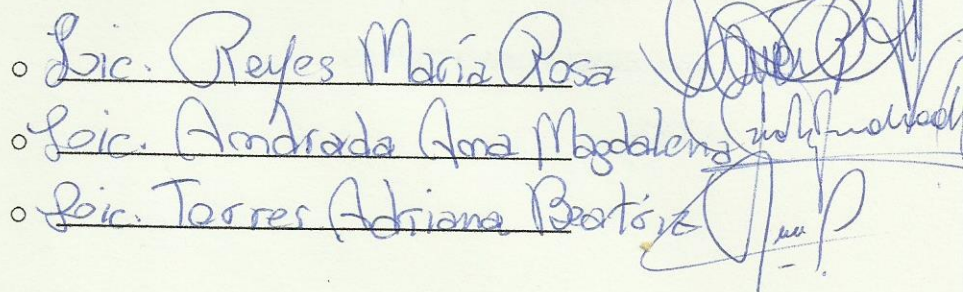 Lic. Reyes María Rosa
Loic. Andrada Ana Magdalena
Loic. Torres Adriana Beatríz